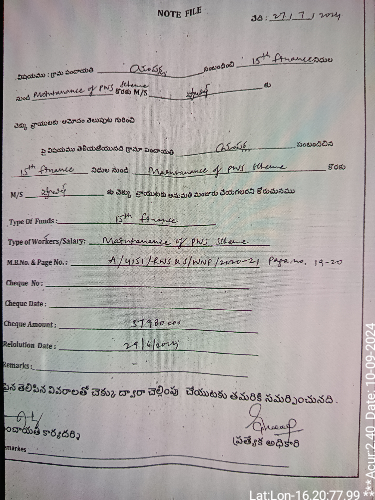 NOTE FILE
తేది : 27/7/2024
విషయము : గ్రామ పంచాయతి సంబంధించి 15th finance నిధుల
నుండి Maintanance of PWS scheme కొరకు M/S కు
చెక్కు వ్రాయుటకు ఆమోదం తెలుపుట గురించి
పై విషయము తెలియజేయునది గ్రామ పంచాయతి సంబంధించిన
15th finance నిధుల నుండి Maintanance of PWS scheme కొరకు
M/S కు చెక్కు వ్రాయుటకు అనుమతి మంజూరు చేయగలరని కోరుచున్నాము
Type Of Funds : 15th finance
Type of Workers/Salary: Maintanance of PWS scheme
M.B.No. & Page No.: /2020-21 Page.no. 19-20
Cheque No :
Cheque Date :
Cheque Amount : 57980.00
Relolution Date :
Remarks :
పైన తెలిపిన వివరాలతో చెక్కు ద్వారా చెల్లింపు చేయుటకు తమరికి సమర్పించునది.
పంచాయతీ కార్యదర్శి
ప్రత్యేక అధికారి
Remarkes
Lat:Lon-16.20:77.99
Acur:2.40 Date: 10-09-2024